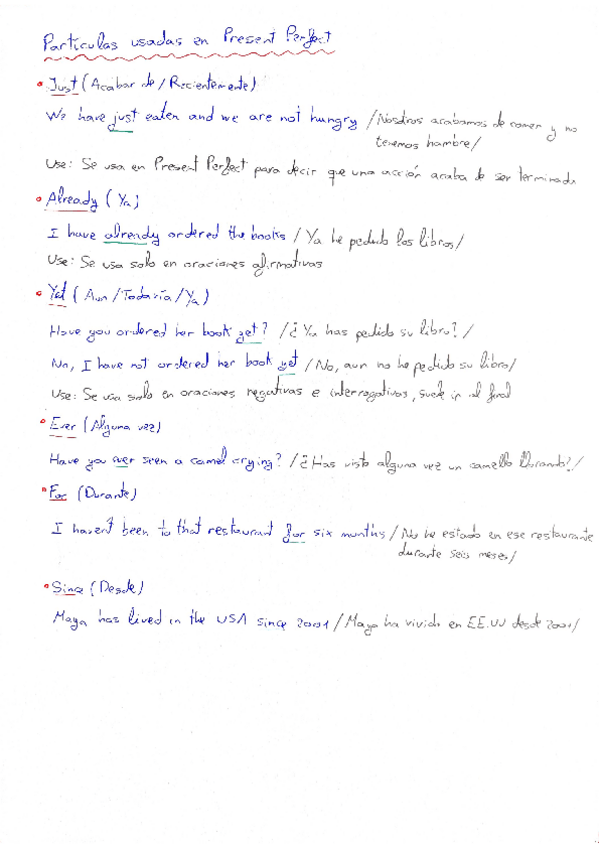 Partículas usadas en Present Perfect
• Just (Acabar de / Recientemente)
We have just eaten and we are not hungry / Nosotros acabamos de comer y no
tenemos hambre /
Use: Se usa en Present Perfect para decir que una acción acaba de ser terminada
• Already (Ya)
I have already ordered the books / Ya he pedido los libros /
Use: Se usa solo en oraciones afirmativas
• Yet (Aun / Todavía / Ya)
Have you ordered her book yet? / ¿Ya has pedido su libro? /
No, I have not ordered her book yet / No, aun no he pedido su libro /
Use: Se usa solo en oraciones negativas e interrogativas, suele ir al final
• Ever (Alguna vez)
Have you ever seen a camel crying? / ¿Has visto alguna vez un camello llorando? /
• For (Durante)
I haven't been to that restaurant for six months / No he estado en ese restaurante
durante seis meses /
• Since (Desde)
Maya has lived in the USA since 2001 / Maya ha vivido en EE.UU desde 2001 /